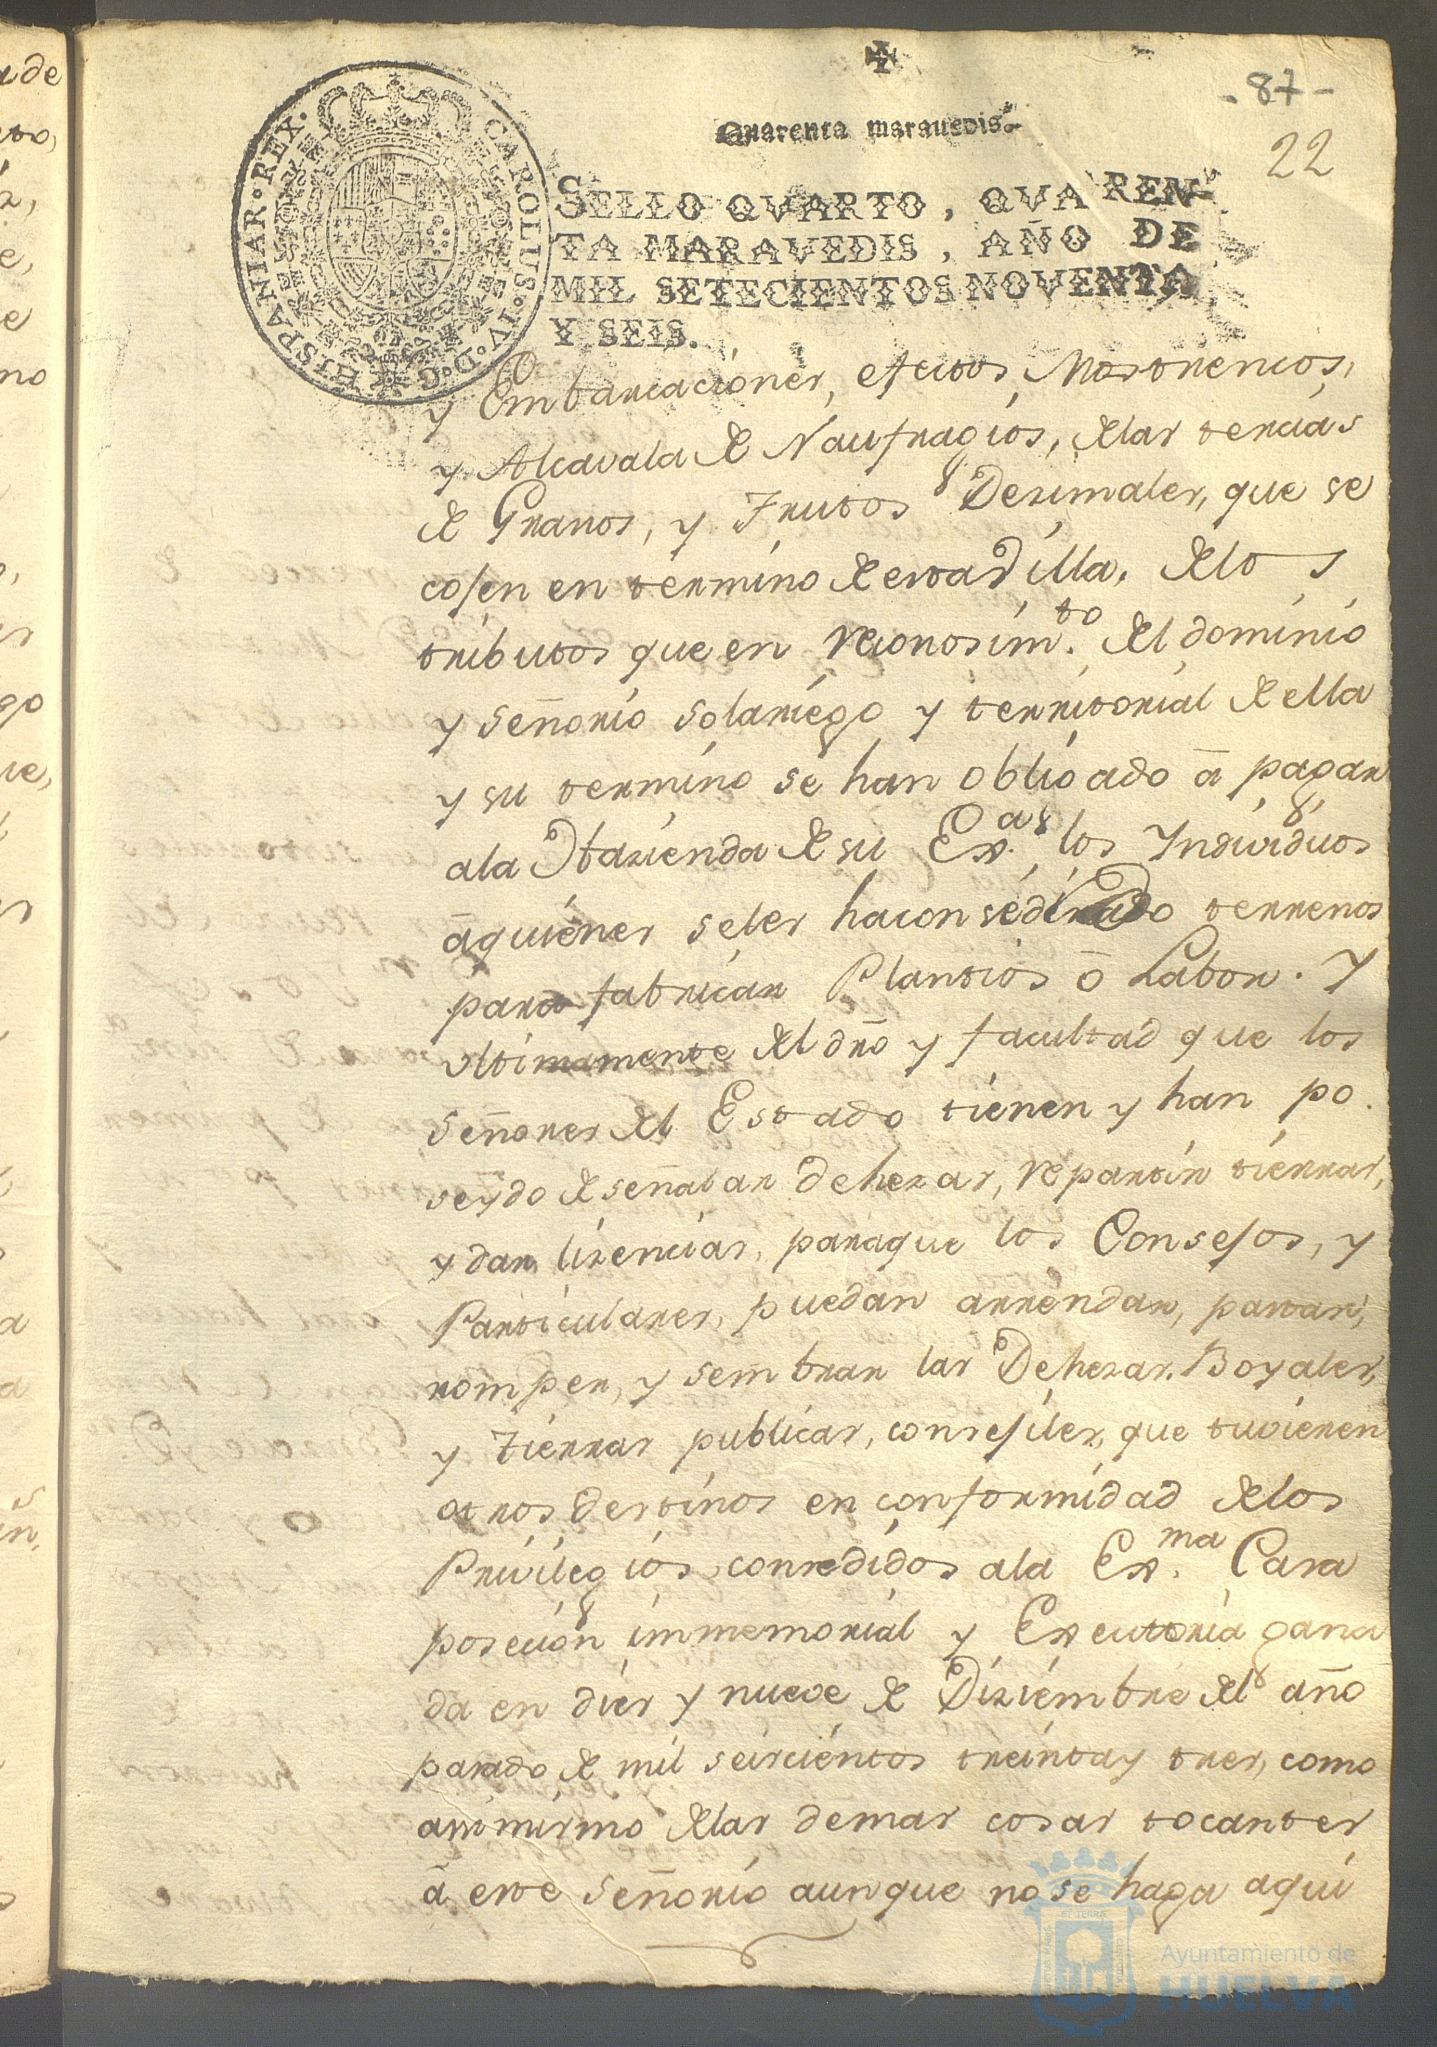 -87-
22
Quarenta maravedis.
SELLO QVARTO, QVAREN-
TA MARAVEDIS, AÑO DE
MIL SETECIENTOS NOVENTA
Y SEIS.
CAROLUS·IV·D·G·HISPANIAR·REX·
y Embarcaciones, efectos Mostrencos,
y Alcavala de Naufragios, delas tercias
de Granos, y Frutos Dezimales, que se
cojen en termino de esta Villa, delos
tributos que en reconosim.to del dominio
y señorio solariego y territorial de ella
y su termino se han obligado â pagar
ala Hazienda de su Ex.a los Yndividuos
âquienes seles ha consedido terrenos
para fabricar Plantios ô Labor. Y
ultimamente del dro y facultad que los
señores del Estado tienen y han po
seydo de señalar dehezas, repartir tierras,
y dar lizencias, paraque los Consejos, y
Particulares, puedan arrendar, pastar,
romper, y sembrar las Dehezas Boyales,
y Tierras publicas, consejiles, que tuvieren
otros destinos en conformidad delos
Privilegios consedidos ala Ex.ma Casa
poseción immemorial y Executoria gana
da en dies y nueve de Diziembre del año
pasado de mil seiscientos treinta y tres, como
asimismo delas demas cosas tocantes
â este Señorio aunque no se haga aqui
Ayuntamiento de
HUELVA